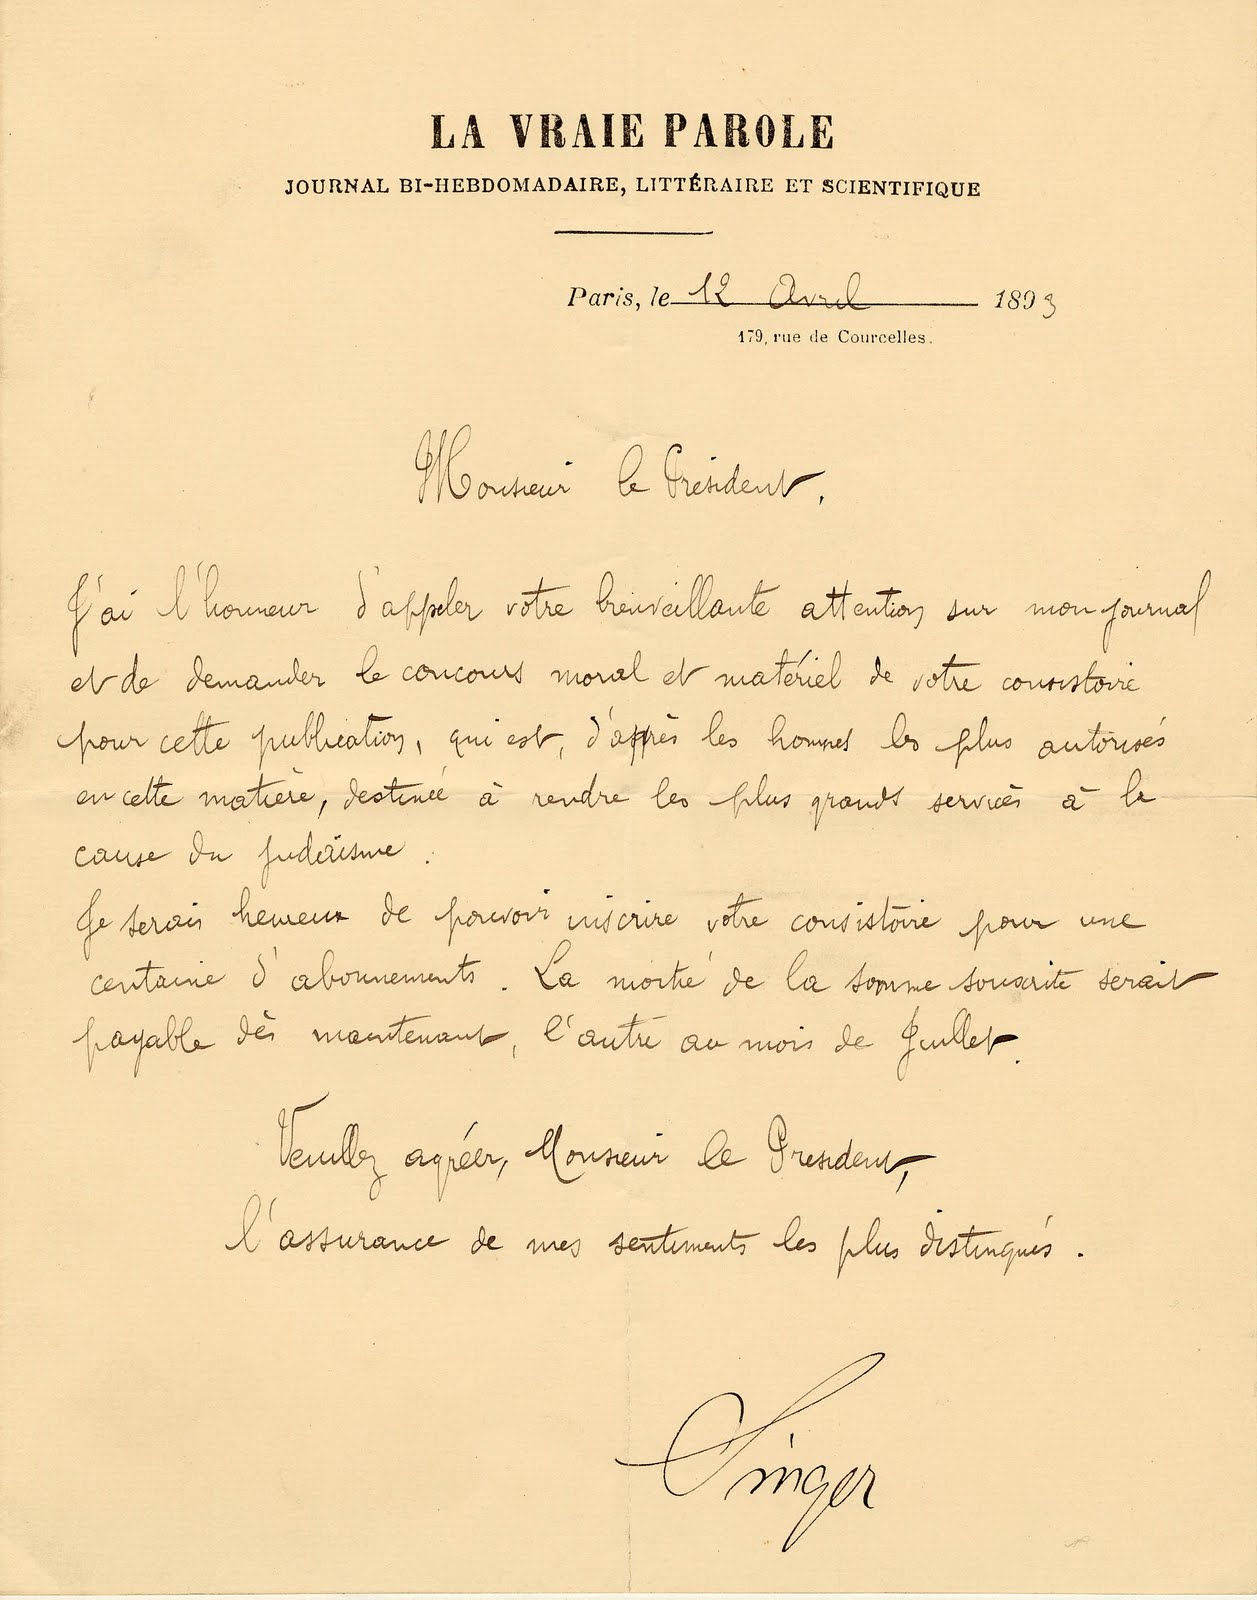 LA VRAIE PAROLE
JOURNAL BI-HEBDOMADAIRE, LITTÉRAIRE ET SCIENTIFIQUE
Paris, le 12 Avril 1893
179, rue de Courcelles.
Monsieur le Président,
J'ai l'honneur d'appeler votre bienveillante attention sur mon journal
et de demander le concours moral et matériel de votre consistoire
pour cette publication, qui est, d'après les hommes les plus autorisés
en cette matière, destinée à rendre les plus grands services à la
cause du judaïsme.
Je serais heureux de pouvoir inscrire votre consistoire pour une
centaine d'abonnements. La moitié de la somme souscrite serait
payable dès maintenant, l'autre au mois de Juillet.
Veuillez agréer, Monsieur le Président,
l'assurance de mes sentiments les plus distingués.
Singer